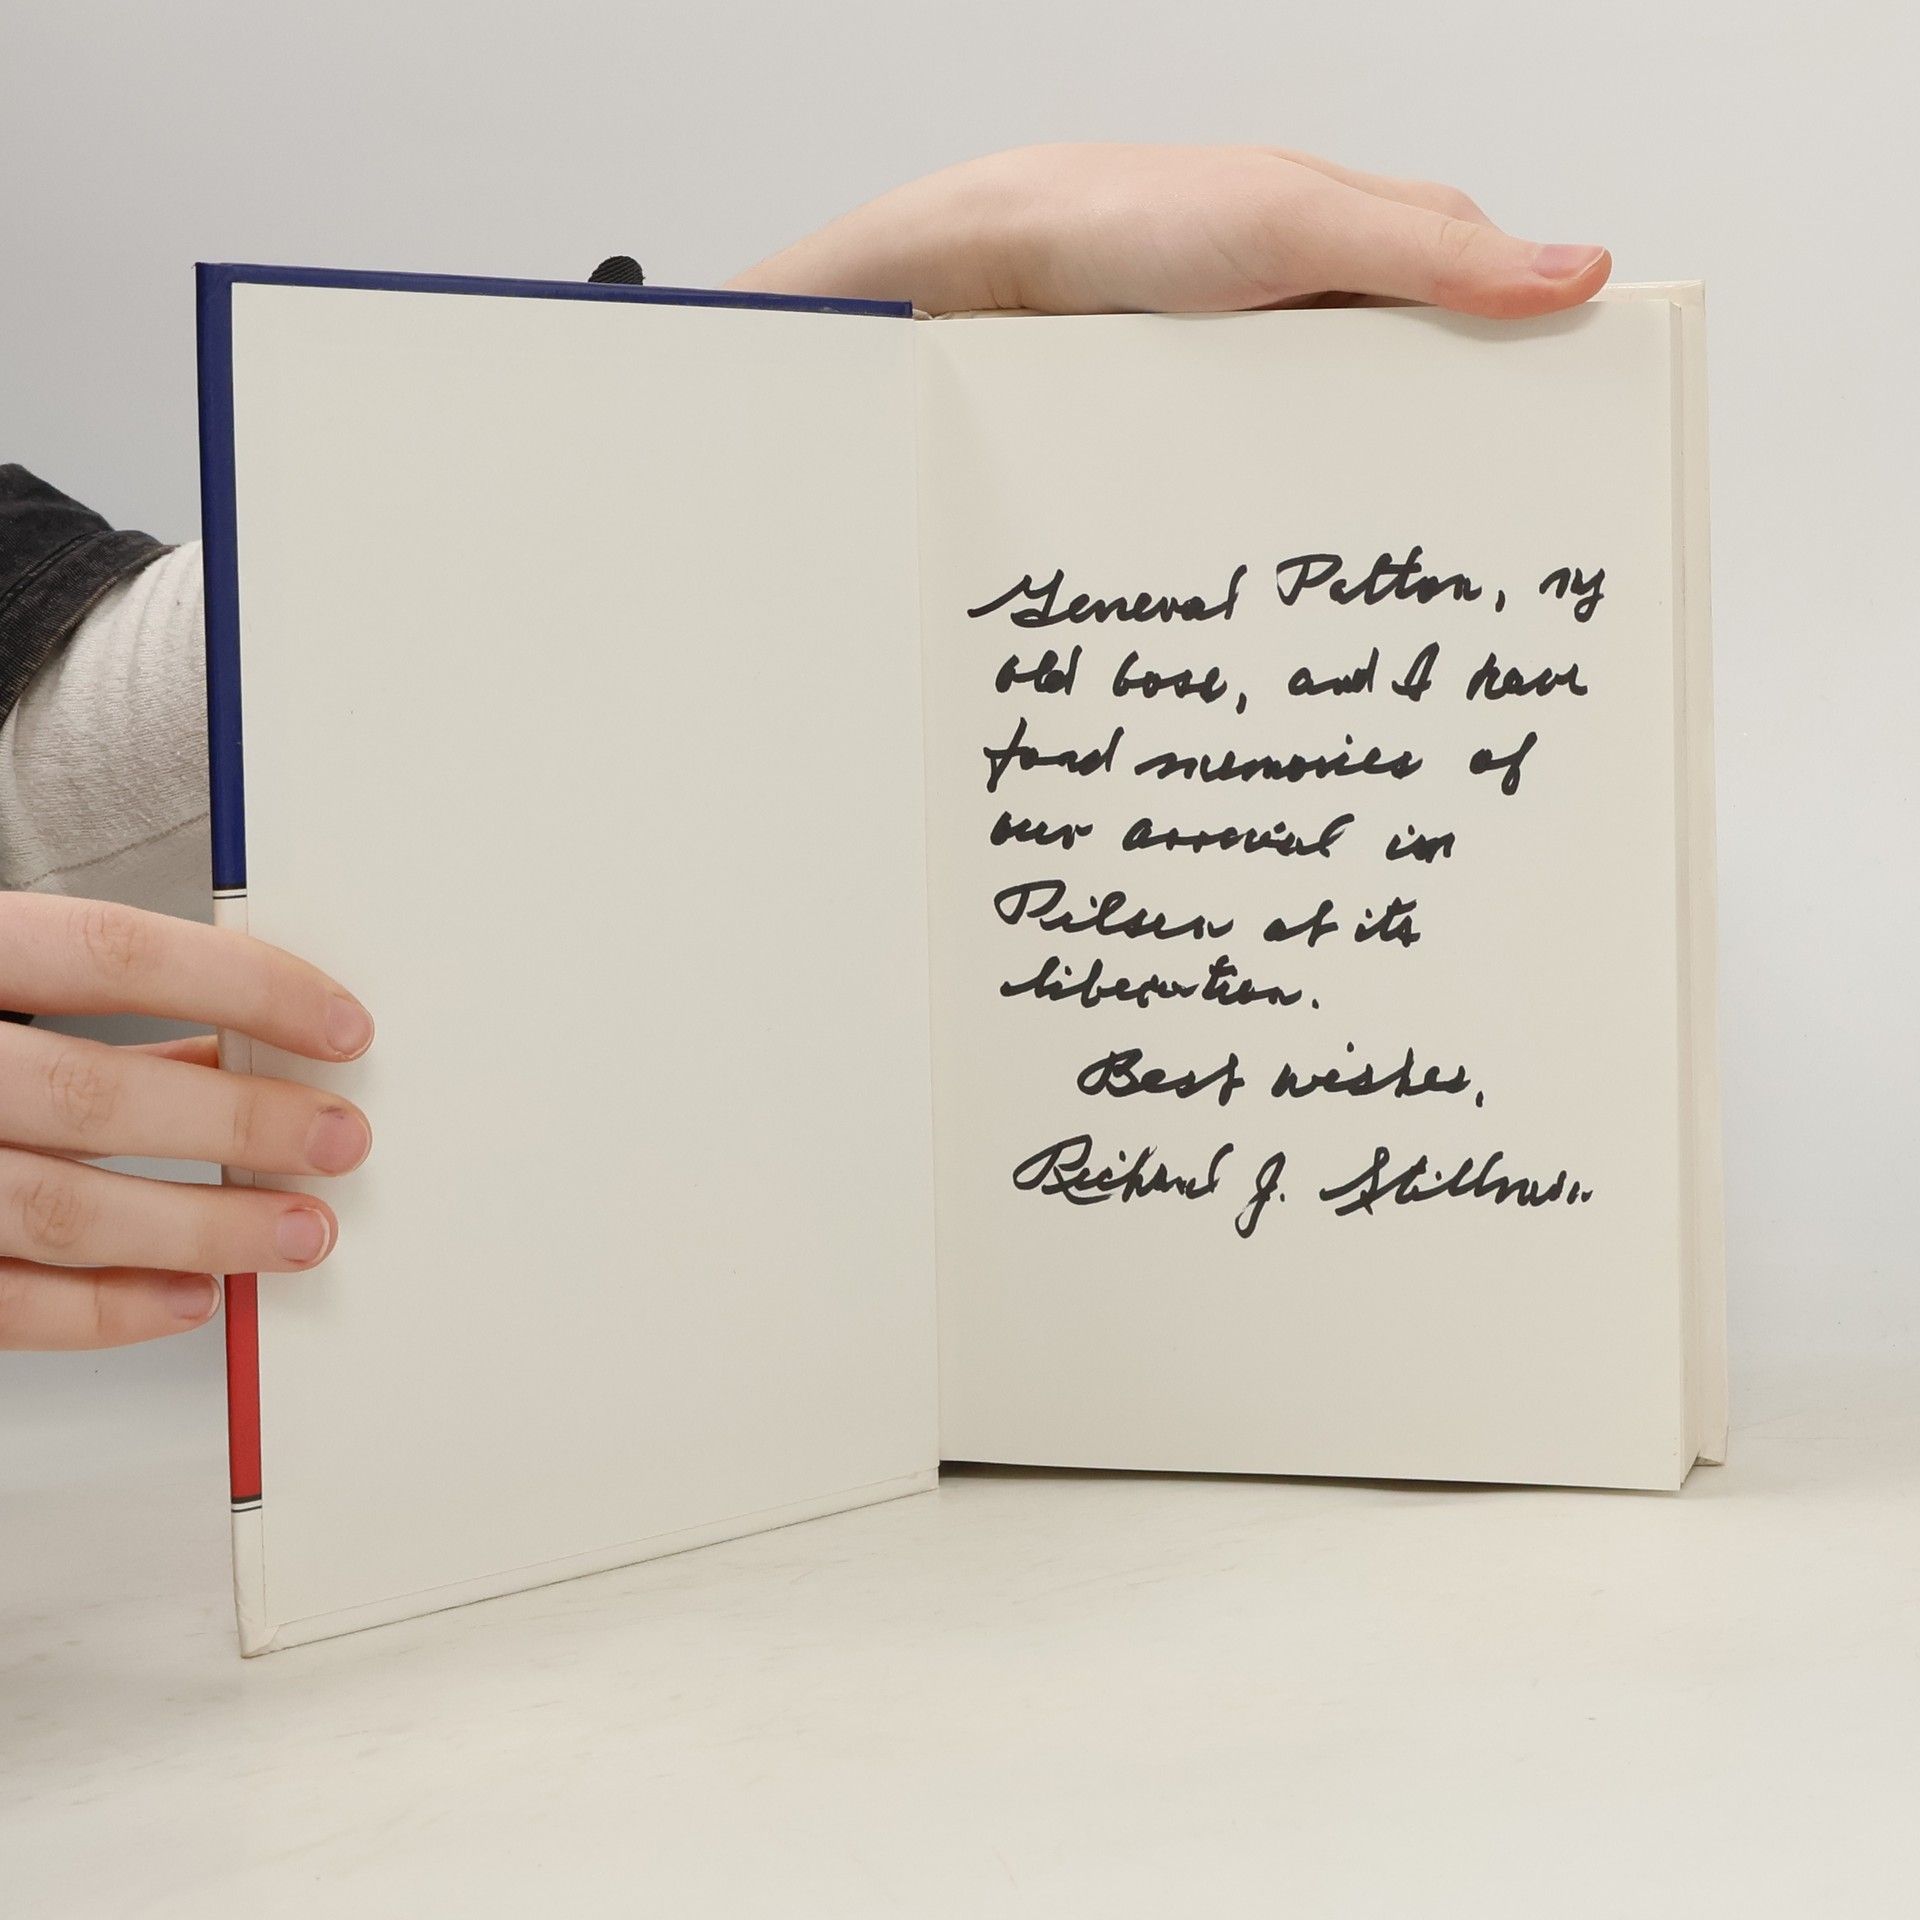 General Patton, my
old boss, and I have
fond memories of
our arrival in
Pilsen at its
liberation.
Best wishes,
Richard J. Stillman